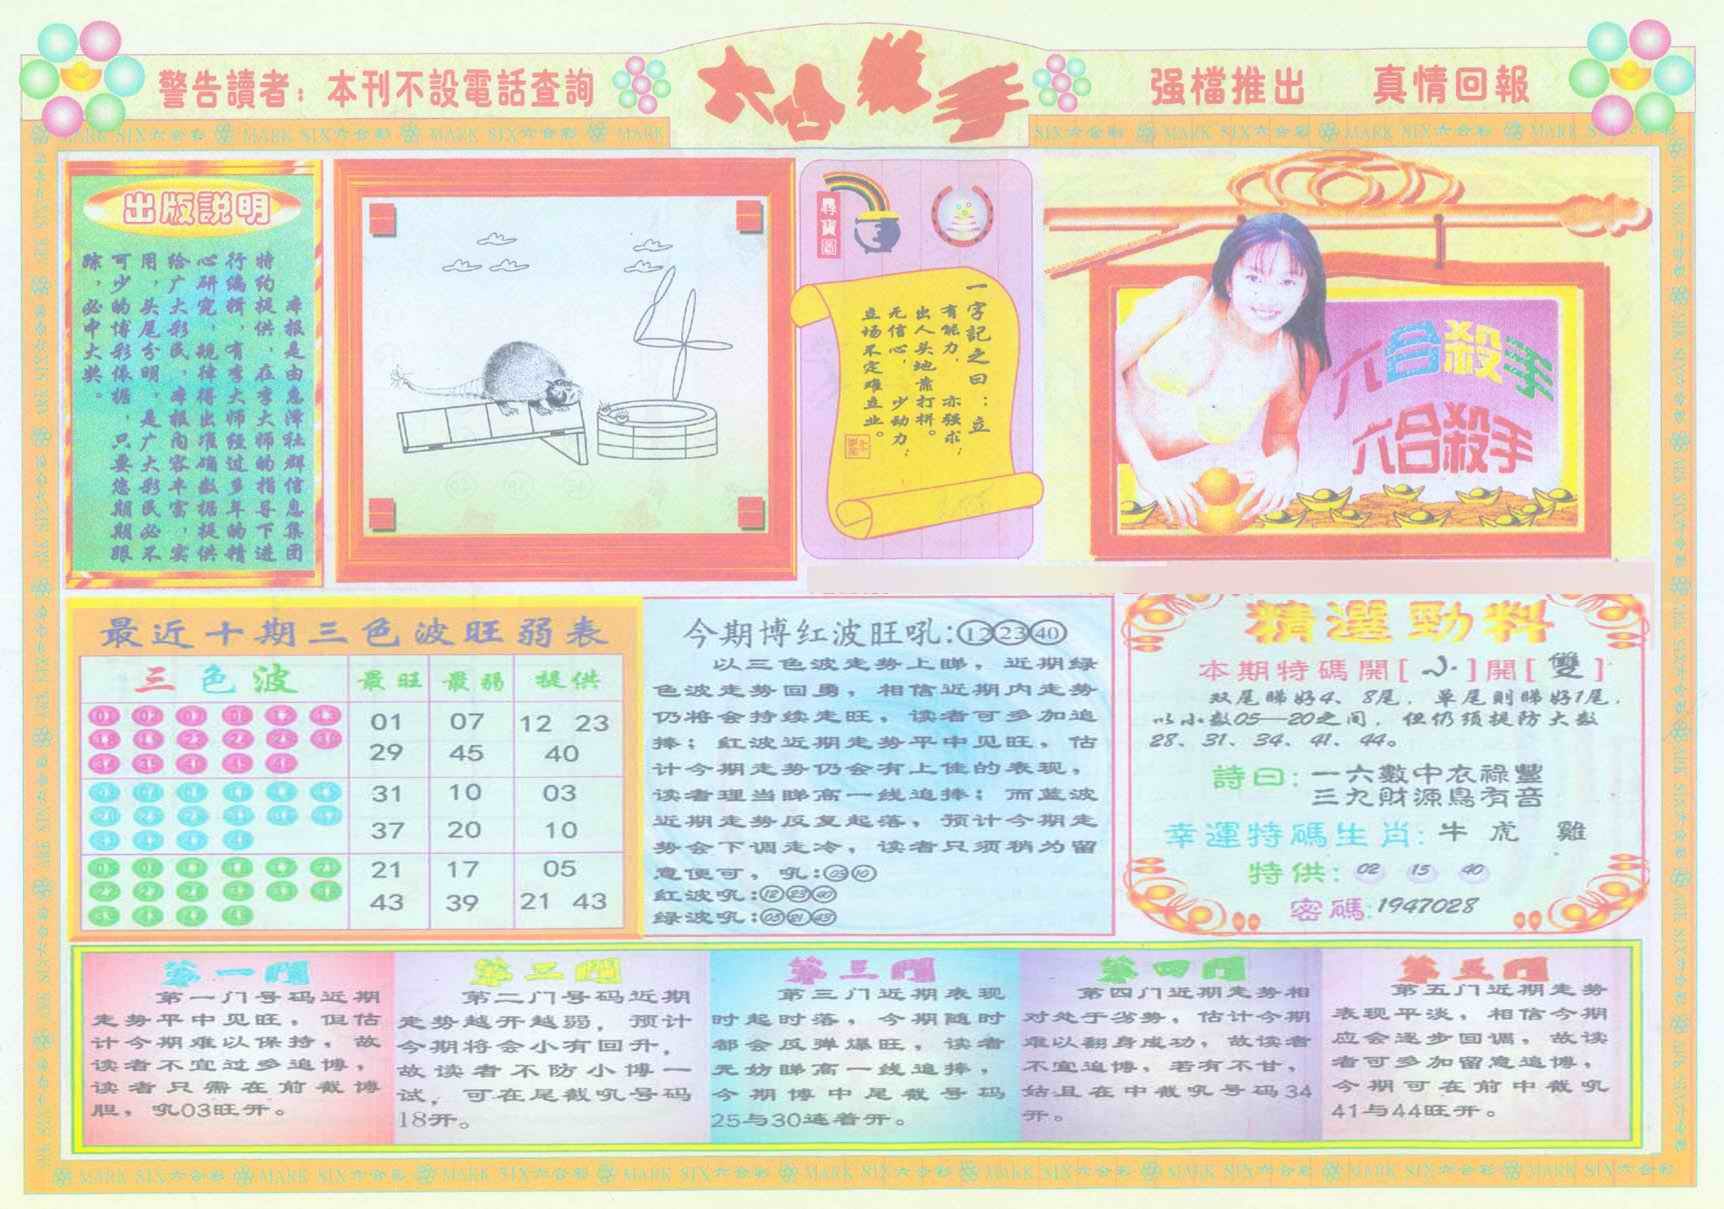 警告讀者：本刊不設電話查詢
六合殺手
强檔推出 真情回報
MARK SIX六合彩
出版説明
本报是由息澤社群信息集团
特约提供，在李大师的指导下进
行编辑，有李大师经过多年的精
心研究，规律得出准确数据提供
给广大彩民，本报内容丰富，实
用，头尾分明，是广大彩民必不
可少的博彩依据，只要您期期跟
踪，必中大奖。
尋寶圖
一字記之曰：立
有能力，亦强求；
出人头地靠打拼。
无信心，少动力；
立场不定难立业。
六合殺手
六合殺手
最近十期三色波旺弱表
三色波 最旺 最弱 提供
01 07 12 23
29 45 40
31 10 03
37 20 10
21 17 05
43 39 21 43
今期博红波旺吼:⑫㉓㊵
以三色波走势上睇，近期绿
色波走势回勇，相信近期内走势
仍将会持续走旺，读者可多加追
捧；红波近期走势平中见旺，估
计今期走势仍会有上佳的表现，
读者理当睇高一线追捧；而蓝波
近期走势反复起落，预计今期走
势会下调走冷，读者只须稍为留
意便可，吼:03 10
红波吼:12 23 40
绿波吼:05 21 43
精選勁料
本期特碼開[小]開[雙]
双尾睇好4、8尾，单尾则睇好1尾，
以小数05—20之间，但仍须提防大数
28、31、34、41、44。
詩曰：一六數中衣祿豐
三九財源鳥有音
幸運特碼生肖:牛 虎 雞
特供: 02 15 40
密碼:1947028
第一門
第一门号码近期
走势平中见旺，但估
计今期难以保持，故
读者不宜过多追博，
读者只需在前截博
胆，吼03旺开。
第二門
第二门号码近期
走势越开越弱，预计
今期将会小有回升，
故读者不防小博一
试，可在尾截吼号码
18开。
第三門
第三门近期表现
时起时落，今期随时
都会反弹爆旺，读者
无妨睇高一线追捧，
今期博中尾截号码
25与30连着开。
第四門
第四门近期走势相
对处于劣势，估计今期
难以翻身成功，故读者
不宜追博，若有不甘，
姑且在中截吼号码34
开。
第五門
第五门近期走势
表现平淡，相信今期
应会逐步回调，故读
者可多加留意追博，
今期可在前中截吼
41与44旺开。